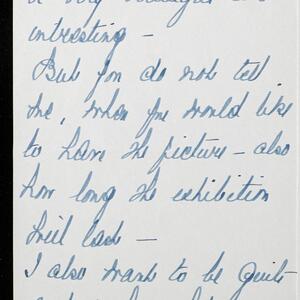 intresting -
But you do not tell
me, when you would like
to have the picture - also
how long the exhibition
will last -
I also want to be quite